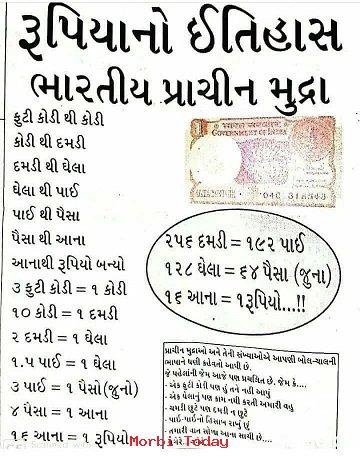 રૂપિયાનો ઈતિહાસ
ભારતીય પ્રાચીન મુદ્રા
ફુટી કોડી થી કોડી
કોડી થી દમડી
દમડી થી ઘેલા
ઘેલા થી પાઈ
પાઈ થી પૈસા
પૈસા થી આના
આનાથી રૂપિયો બન્યો
૩ ફુટી કોડી = ૧ કોડી
૧૦ કોડી = ૧ દમડી
૨ દમડી = ૧ ઘેલા
૧.૫ પાઈ = ૧ ઘેલા
૩ પાઈ = ૧ પૈસો(જુનો)
૪ પૈસા = ૧ આના
૧૬ આના = ૧ રૂપિયો
भारत सरकार
GOVERNMENT OF INDIA
૨૫૬ દમડી = ૧૯૨ પાઈ
૧૨૮ ઘેલા = ૬૪ પૈસા (જુના)
૧૬ આના = ૧રૂપિયો...!!
પ્રાચીન મુદ્રાઓ અને તેની સંખ્યાઓએ આપણી બોલ-ચાલની
ભાષાને ઘણી કહેવતો આપી છે.
જે પહેલાંની જેમ આજે પણ પ્રચલિત છે. જેમ કે....
- એક ફુટી કોડી પણ હું તને નહીં આપું
- એક ઘેલાનું પણ કામ નથી કરતી અમારી વહુ
- ચમડી છુટે પણ દમડી ન છુટે
- પાઈ-પાઈનો હિસાબ રાખું છું
- તમારી વાત સોળ આના સાચી છે....
વગેરે
Morbi Today